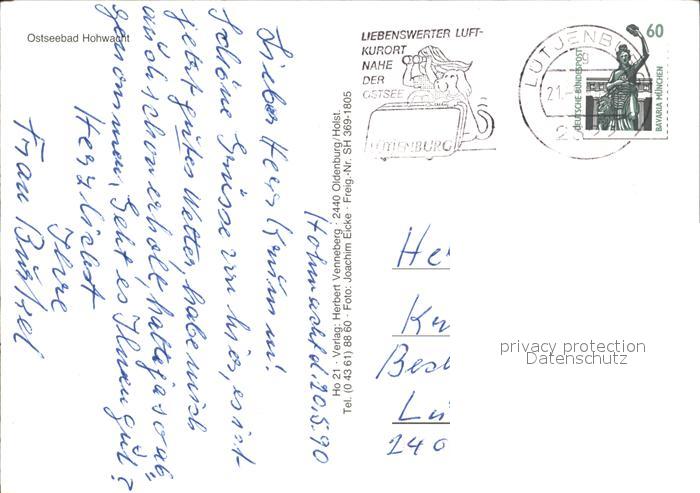 Ostseebad Hohwacht
Hohwacht d. 20.5.90
Lieber Herr
Schöne Grüsse von hier, es ist
jetzt gutes Wetter, habe mich
auch schon erholt, hatte ja so ab-
genommen, Geht es Ihnen gut?
Herzlichst
Ihre
Frau
Ho 21 · Verlag: Herbert Venneberg · 2440 Oldenburg/Holst.
Tel. (0 43 61) 88 60 · Foto: Joachim Eicke · Freig.-Nr. SH 369-1805
LIEBENSWERTER LUFT-
KURORT
NAHE
DER
OSTSEE
LÜTJENBURG
LÜTJENBU
21.-
DEUTSCHE BUNDESPOST
60
BAVARIA MÜNCHEN
He
Kr
Bes
Lü
240
privacy protection
Datenschutz